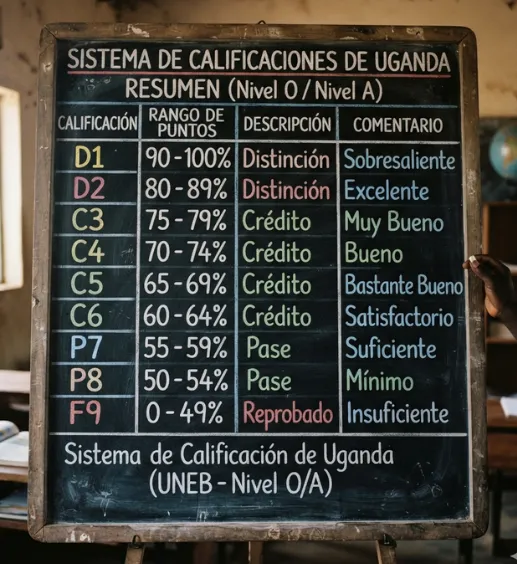 SISTEMA DE CALIFICACIONES DE UGANDA
RESUMEN (Nivel O / Nivel A)
CALIFICACIÓN RANGO DE PUNTOS DESCRIPCIÓN COMENTARIO
D1 90-100% Distinción Sobresaliente
D2 80-89% Distinción Excelente
C3 75-79% Crédito Muy Bueno
C4 70-74% Crédito Bueno
C5 65-69% Crédito Bastante Bueno
C6 60-64% Crédito Satisfactorio
P7 55-59% Pase Suficiente
P8 50-54% Pase Mínimo
F9 0-49% Reprobado Insuficiente
Sistema de Calificación de Uganda
(UNEB - Nivel O/A)